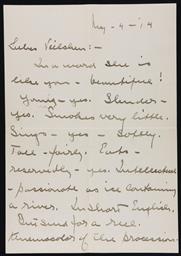 May - 4 - '14
Liebes Veilchen: -
In a word she is
like you - beautiful!
Young - yes. Slender -
yes. Smokes very little.
Sings - yes - softly.
Tall - fairly. Eats -
reservedly - yes. Intellectual
- passionate as ice containing
a river. In short - English.
But send for a reel.
Kinemacolor of the procession.